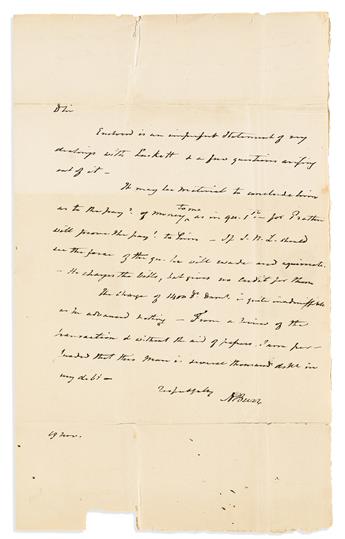 D Sir
Enclosed is an imperfect Statement of my
dealings with Luckett & a few questions arising
out of it —
It may be material to conclude him
to me
as to the paymt. of money, as in qu. 1st — for Prather
will prove the paymt. to him — If J. N. L. should
see the force of the qu. he will evade and equivocate.
— He charges the bills, but gives no credit for them
The charge of 1400 Ds. is quite inadmissible
as he advanced nothing — From a view of the
transaction & without the aid of papers I am per-
suaded that this man is several thousand dolls. in
my debt —
respectfully
A. Burr
19 Nov.